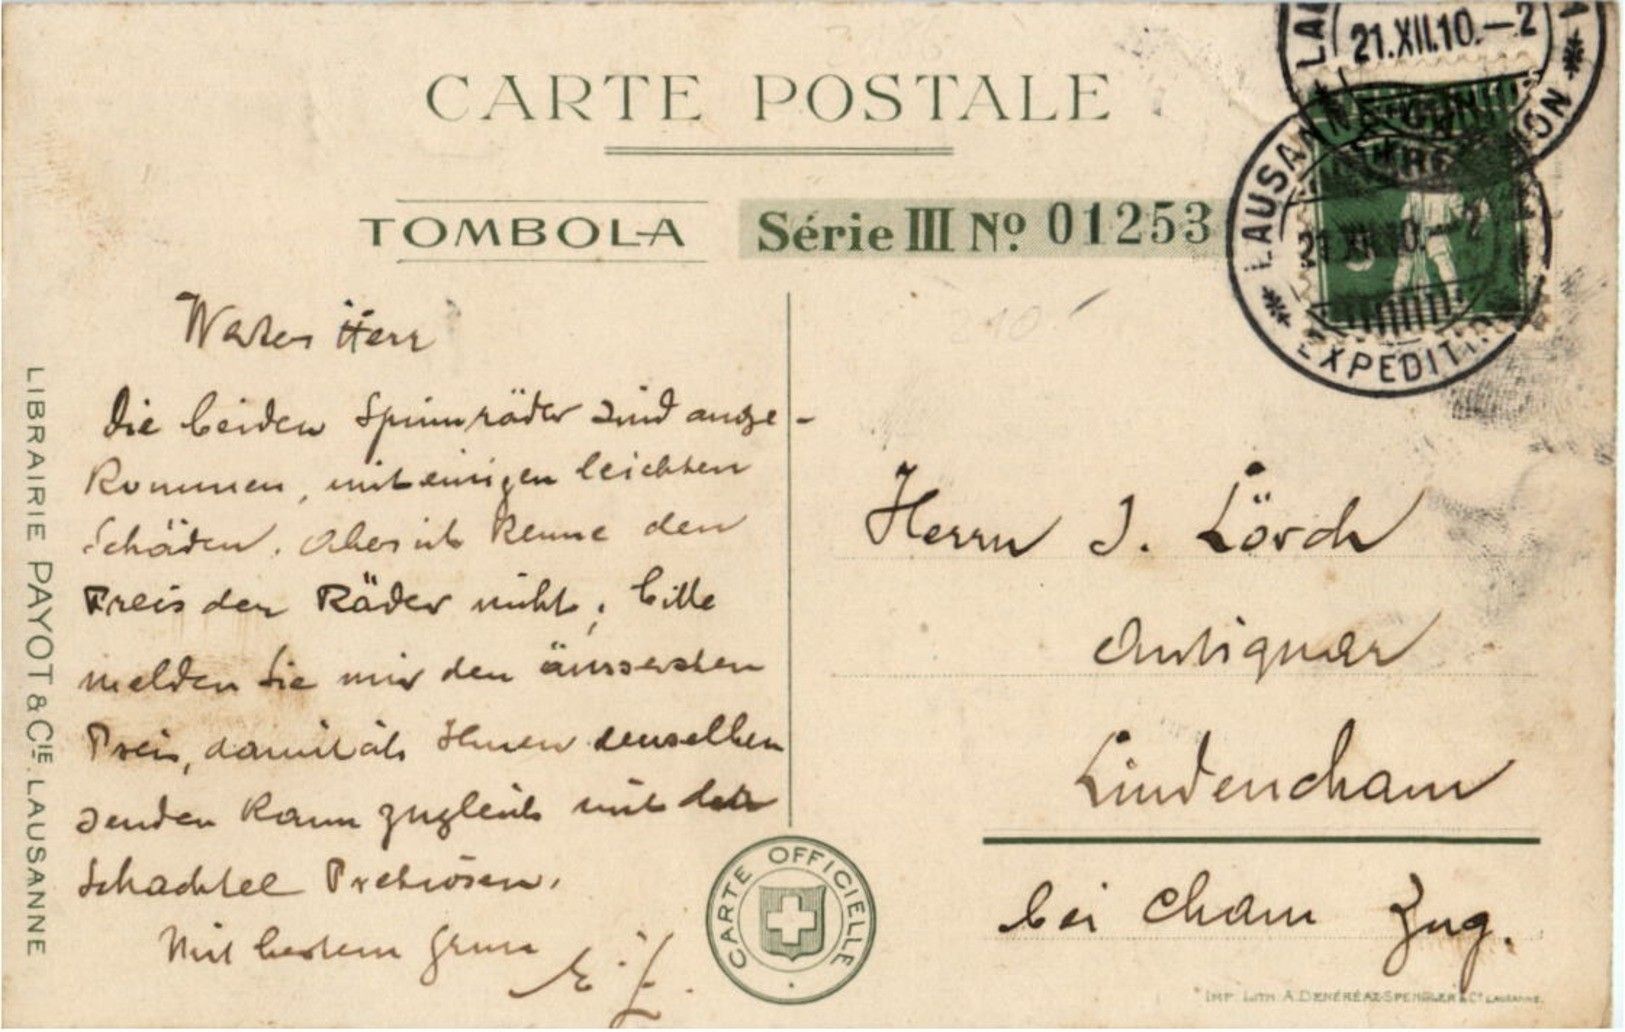 CARTE POSTALE
TOMBOLA
Série III No 01253
LAUSANNE
21.XII.10.—2
EXPEDITION
LAUSANNE
21.XII.10.—2
EXPEDITION
5
Wertes Herr
Die beiden Spinnräder sind ange-
kommen, mit einigen leichten
Schäden. Aber ich kenne den
Preis der Räder nicht; bitte
melden Sie mir den äussersten
Preis, damit ich Ihnen denselben
senden kann zugleich mit der
Schachtel Pretiosen.
Mit bestem Gruss
Herrn J. Lörch
Antiquar
Lindencham
bei Cham Zug.
CARTE OFFICIELLE
LIBRAIRIE PAYOT & CIE. LAUSANNE
IMP. LITH. A. DENÉRÉAZ-SPENGLER & Cie LAUSANNE.